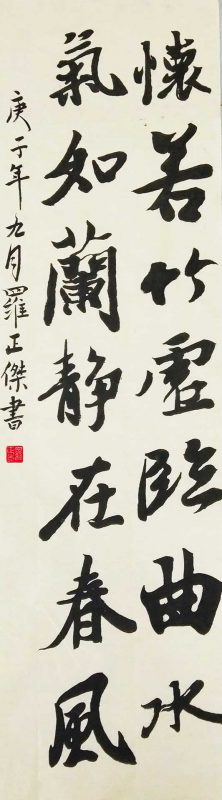 懷若竹虛臨曲水
氣如蘭静在春風
庚子年九月羅正傑書